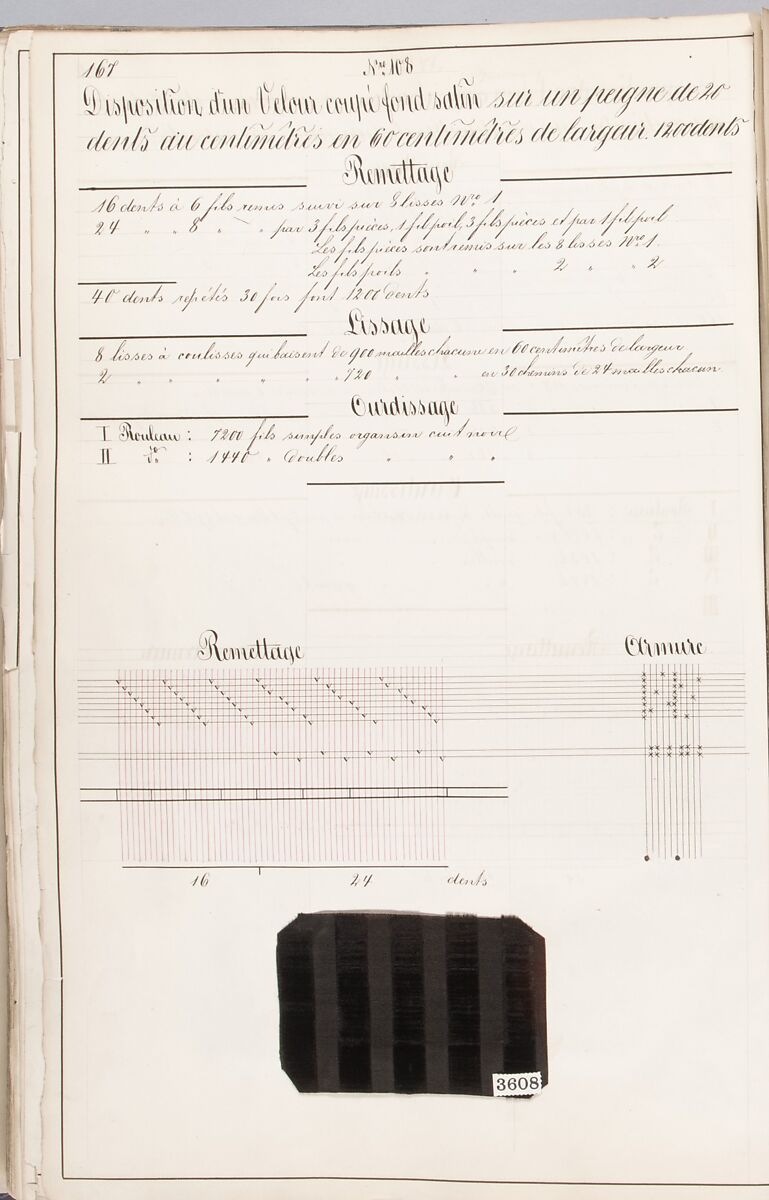 167
Nro 108
Disposition d'un Velour coupé fond satin sur un peigne de 20
dents au centimètres en 60 centimètres de largeur. 1200 dents
Remettage
16 dents à 6 fils remis suivi sur 8 lisses Nro 1
24 " " 8 " " " par 3 fils pièces, 1 fil poil, 3 fils pièces et par 1 fil poil
Les fils pièces sont remis sur les 8 lisses Nro 1.
Les fils poils " " " 2 " " 2
40 dents repétés 30 fois font 1200 dents
Lissage
8 lisses à coulisses qui baisent de 900 mailles chacune en 60 centimètres de largeur
2 " " " " " " 720 " " en 30 chemins de 24 mailles chacun
Ourdissage
I Rouleau : 7200 fils simples organsin cuit noir
II do : 1440 " doubles " " "
Remettage
Armure
16 24 dents
3608